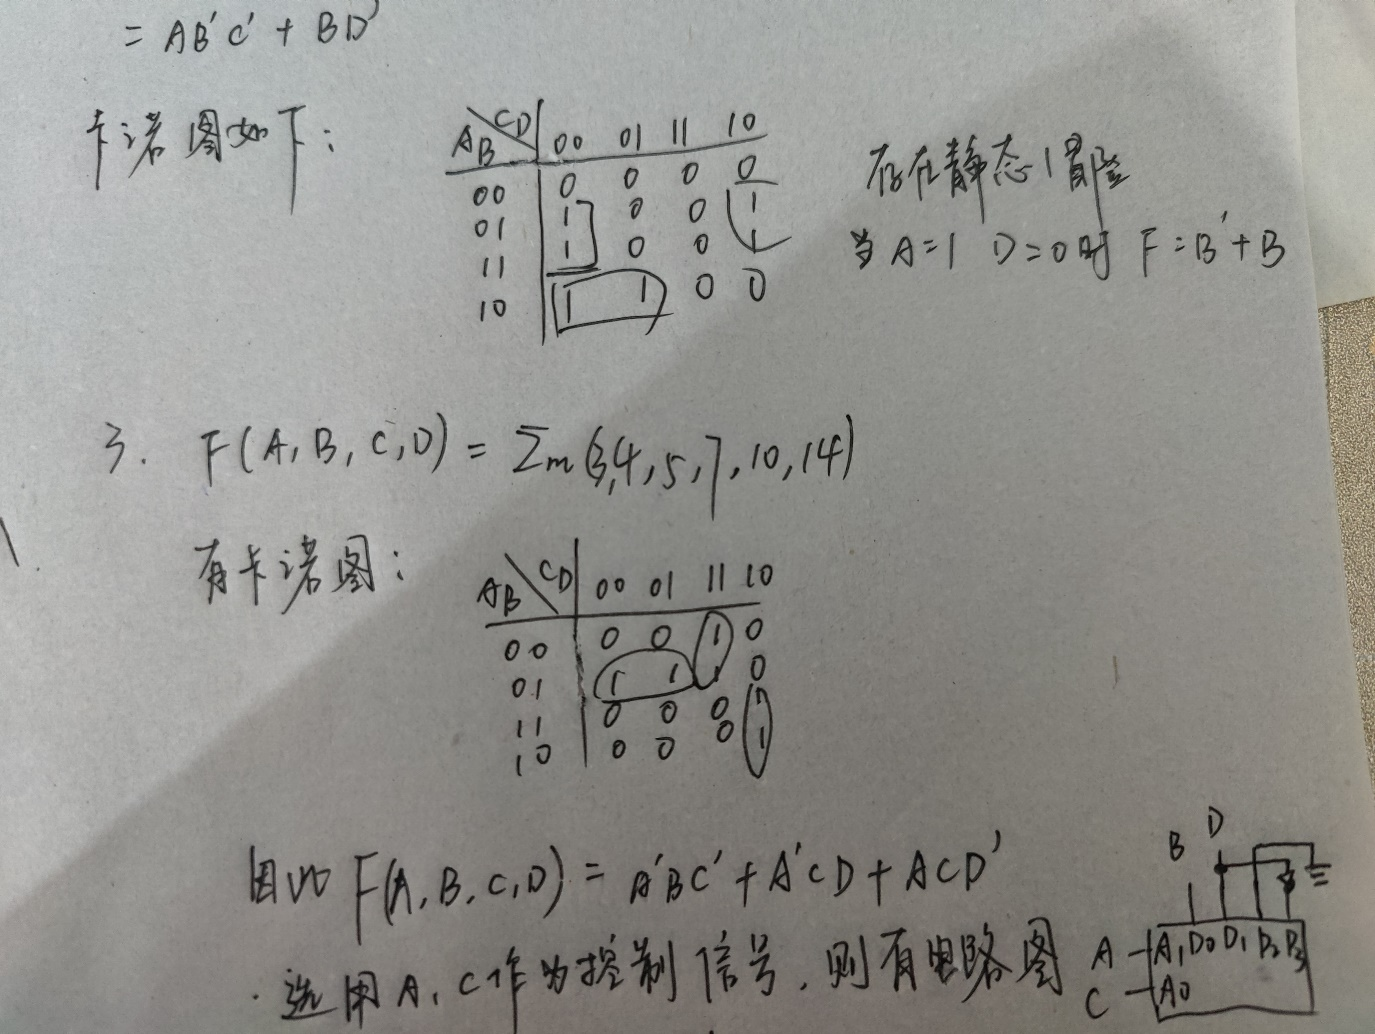 = AB'C' + BD'
卡诺图如下:
AB\CD 00 01 11 10
00 0 0 0 0
01 1 0 0 1
11 1 0 0 1
10 1 1 0 0
存在静态1冒险
当 A=1 D=0时 F=B'+B
3. F(A,B,C,D) = Σm(3,4,5,7,10,14)
有卡诺图:
AB\CD 00 01 11 10
00 0 0 1 0
01 1 1 1 0
11 0 0 0 1
10 0 0 0 1
因此 F(A,B,C,D) = A'BC' + A'CD + ACD'
选用A,C作为控制信号,则有电路图
B D
A A1 D0 D1 D2 D3
C A0